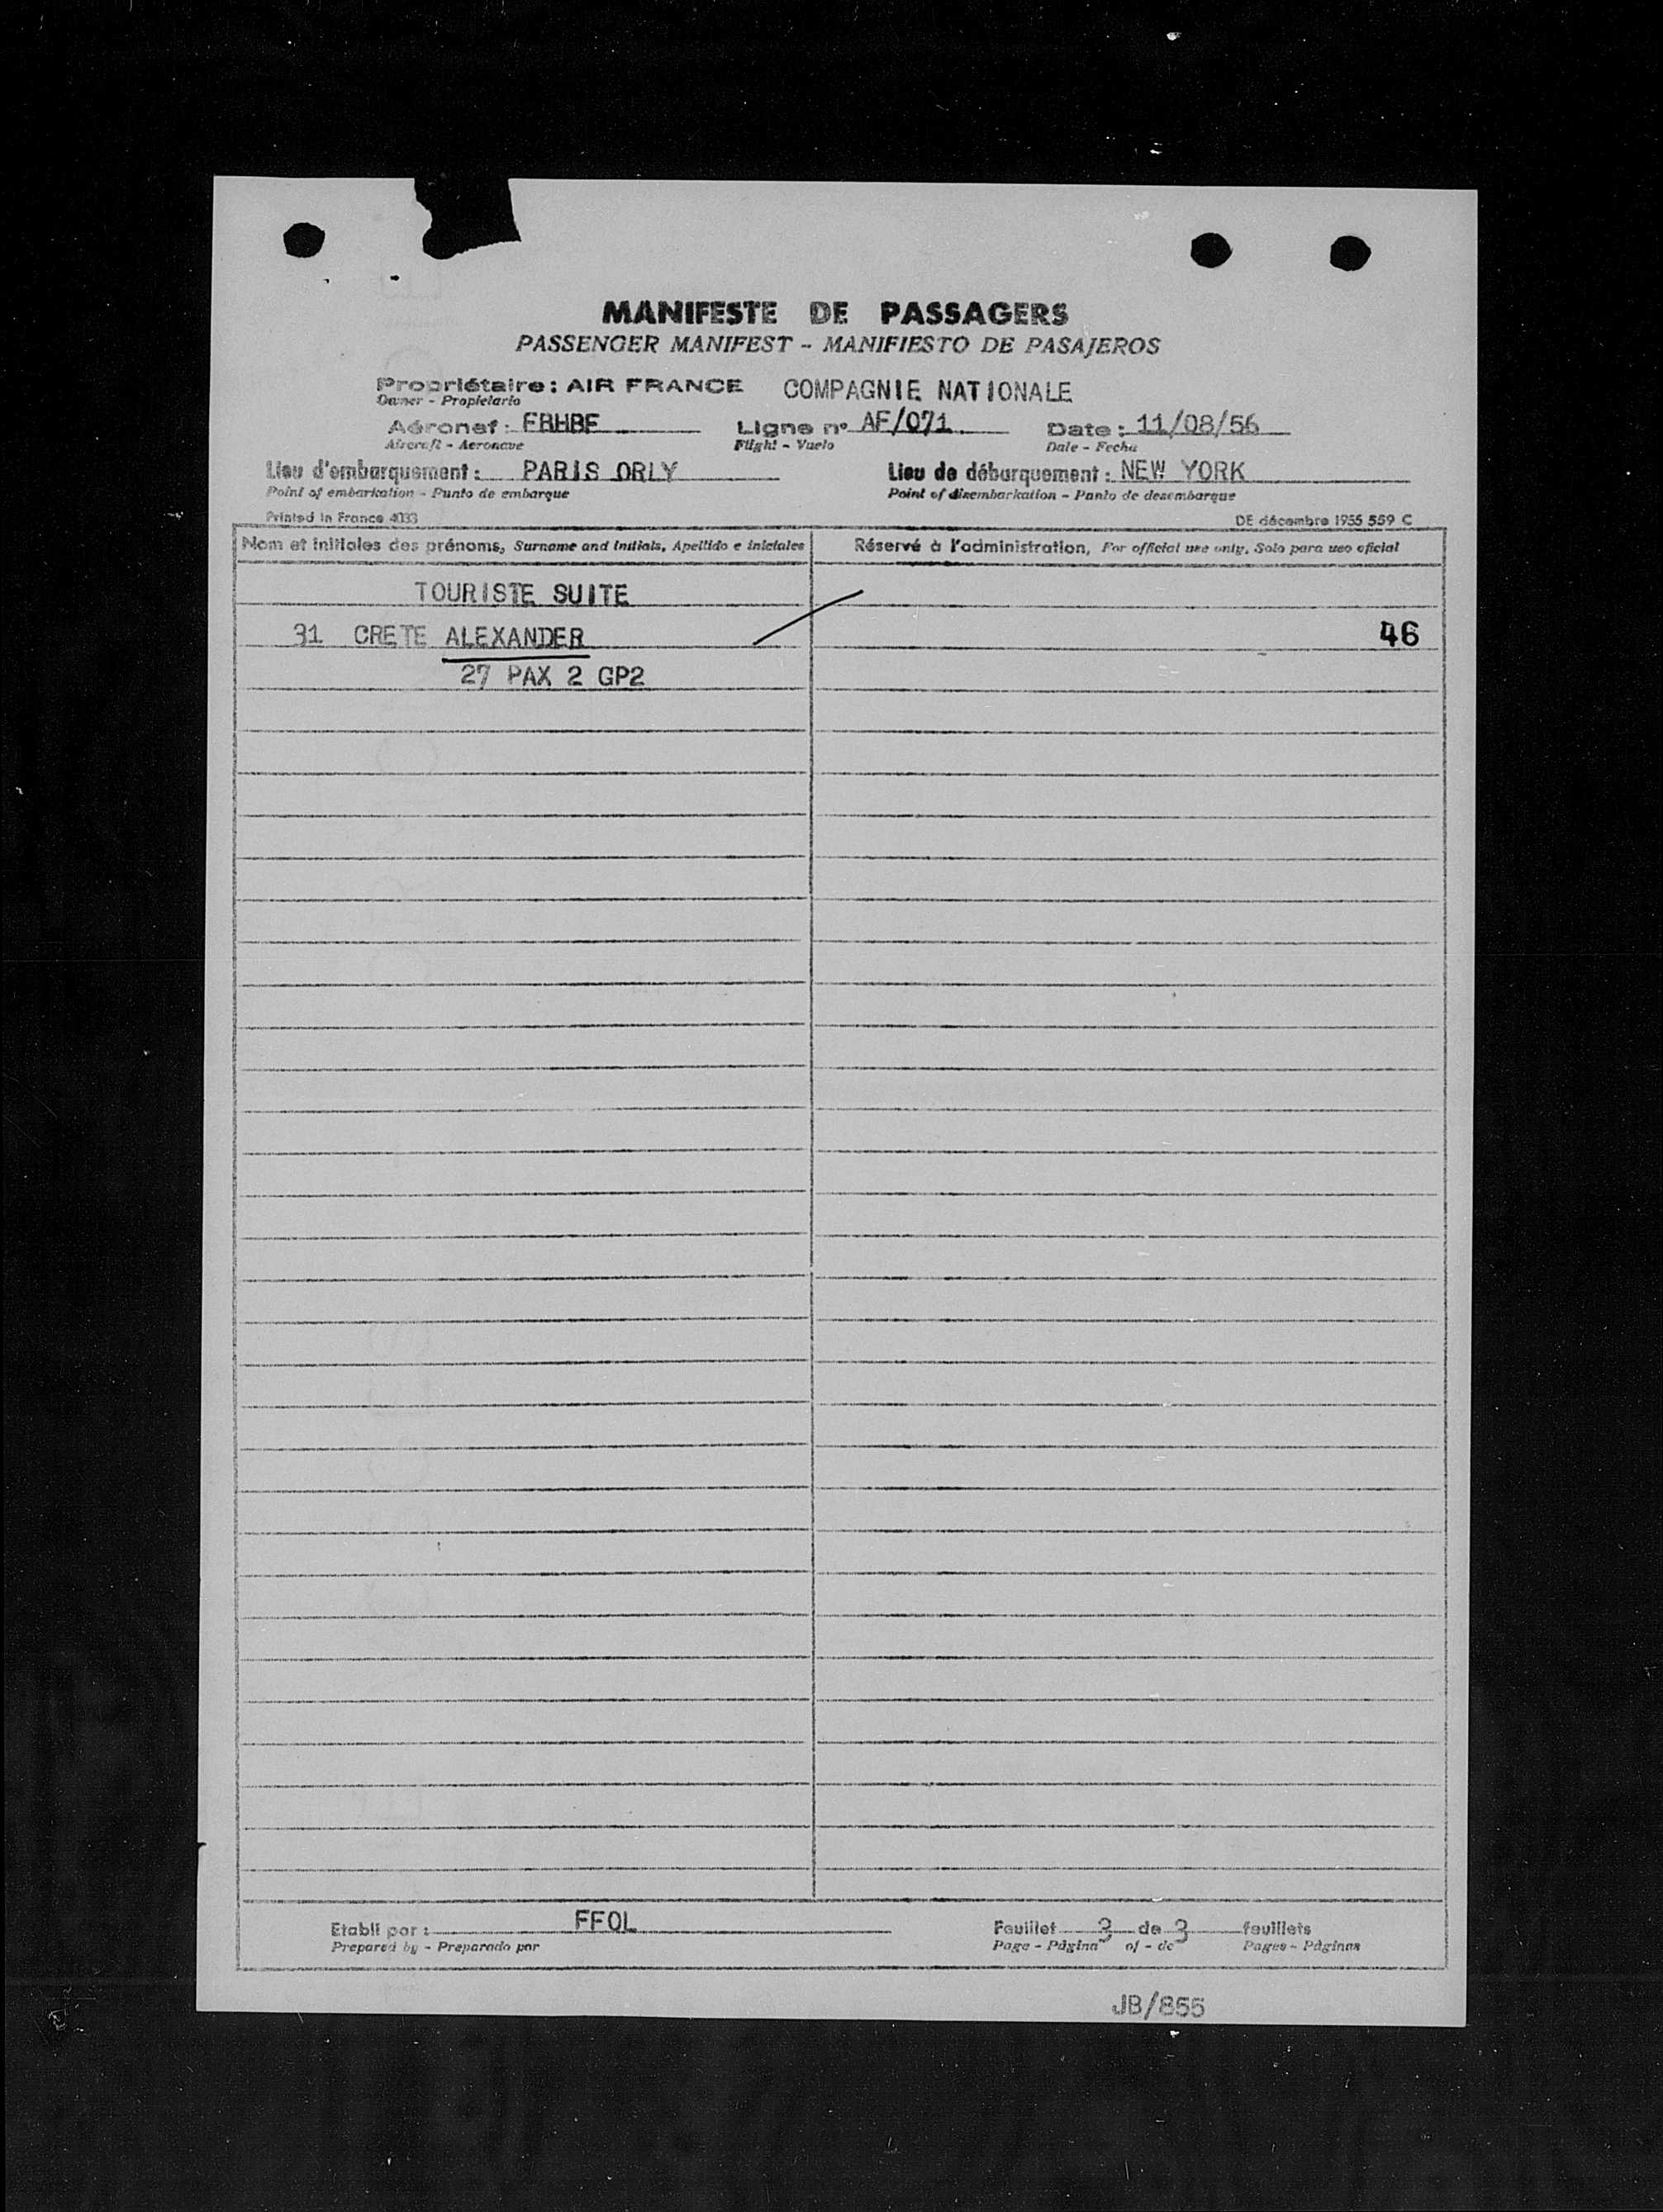 MANIFESTE DE PASSAGERS
PASSENGER MANIFEST - MANIFIESTO DE PASAJEROS
Propriétaire : AIR FRANCE COMPAGNIE NATIONALE
Owner - Propietario
Aéronef : FBHBF Ligne nº AF/071 Date : 11/08/56
Aircraft - Aeronave Flight - Vuelo Date - Fecha
Lieu d'embarquement : PARIS ORLY Lieu de débarquement : NEW YORK
Point of embarkation - Punto de embarque Point of disembarkation - Punto de desembarque
Printed in France 4033 DE décembre 1955 559 C
Nom et initiales des prénoms, Surname and initials, Apellido e iniciales Réservé à l'administration, For official use only, Solo para uso oficial
TOURISTE SUITE
31 CRETE ALEXANDER 46
27 PAX 2 GP2
Etabli par : FFOL Feuillet 3 de 3 feuillets
Prepared by - Preparado por Page - Página of - de Pages - Páginas
JB/855